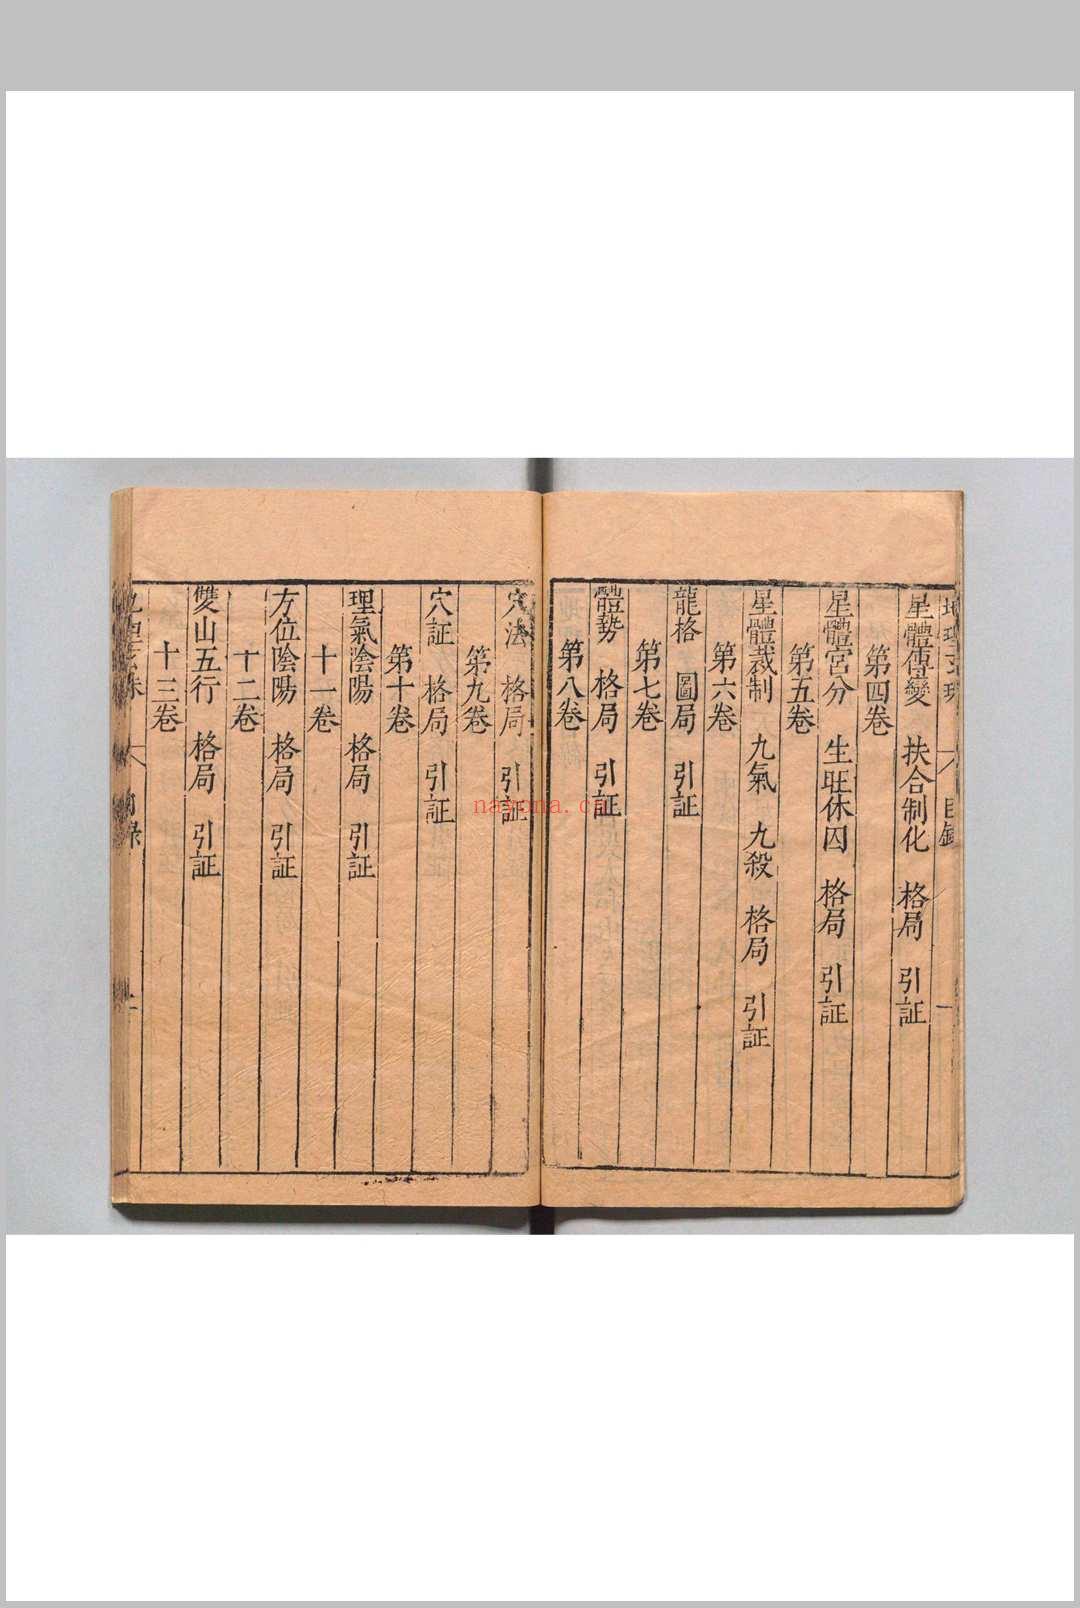 星體傳變　扶合制化　格局　引証
第四卷
星體宮分　生旺休囚　格局　引証
第五卷
星體裁制　九氣　九殺　格局　引証
第六卷
龍格　圖局　引証
第七卷
體勢　格局　引証
第八卷
穴法　格局　引証
第九卷
穴証　格局　引証
第十卷
理氣陰陽　格局　引証
十一卷
方位陰陽　格局　引証
十二卷
雙山五行　格局　引証
十三卷